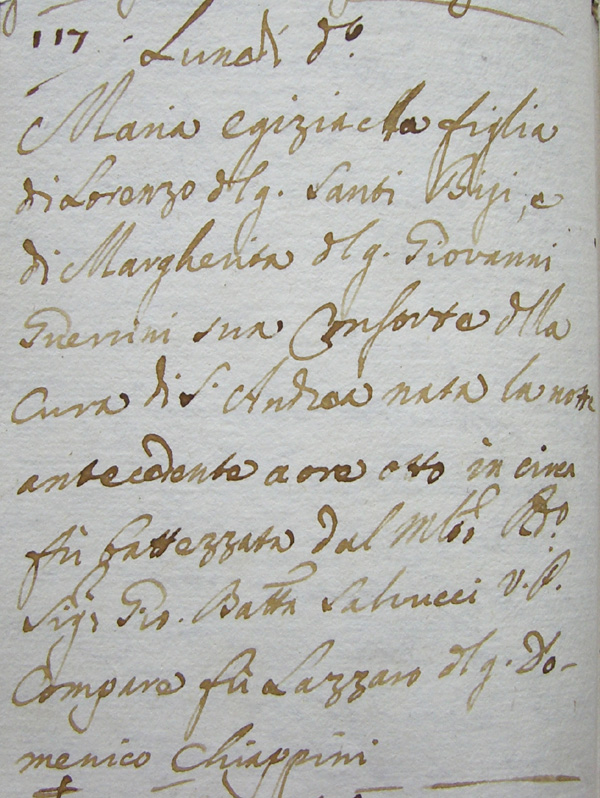 117 . Lunedì d.º
Maria Egiziacha figlia
di Lorenzo dl q. Santi Bigi, e
di Margherita dl q. Giovanni
Guerrini sua Consorte dlla
Cura di S. Andrea nata la notte
antecedente a ore otto in circa
fù battezzata dal Mto Rdo
Sigr Gio. Batta Salvucci V. P.
Compare fù Lazzaro dl q. Do-
menico Chiappini